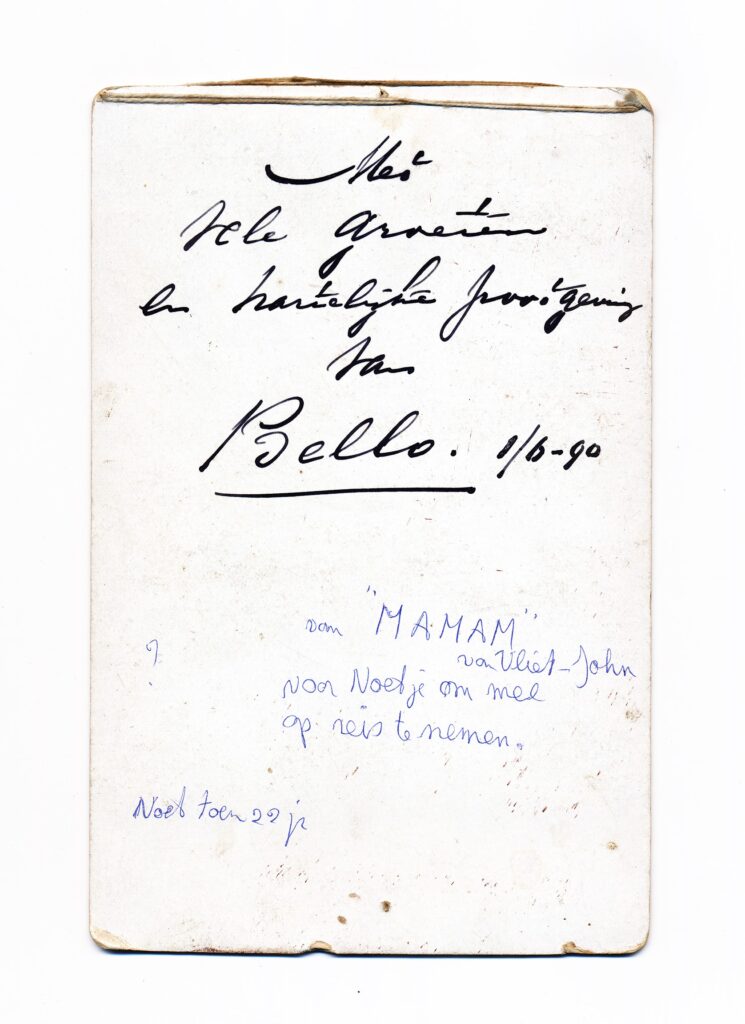 Met
vele groeten
en hartelijke pootgeving
van
Bello. 1/6-90
van "MAMAM"
van Vliet-John
?
voor Noetje om mee
op reis te nemen.
Noet toen 22 jr